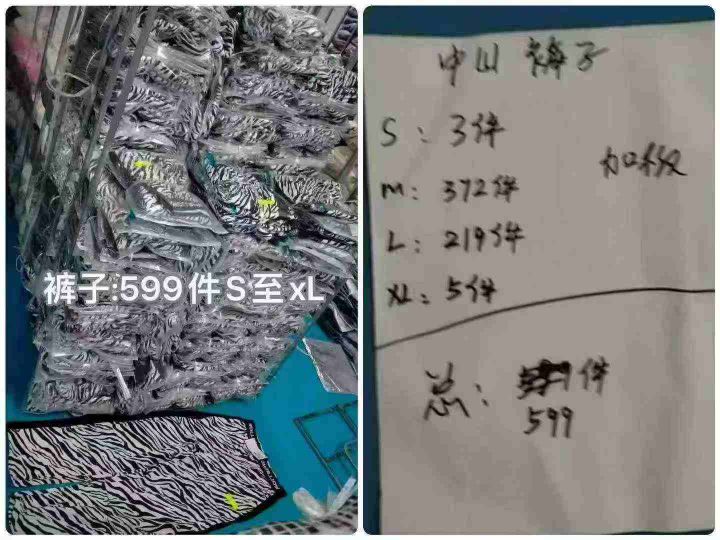 裤子:599件S至xL
中山 裤子
S：3件
加核
M：372件
L：219件
XL：5件
总：
件
599